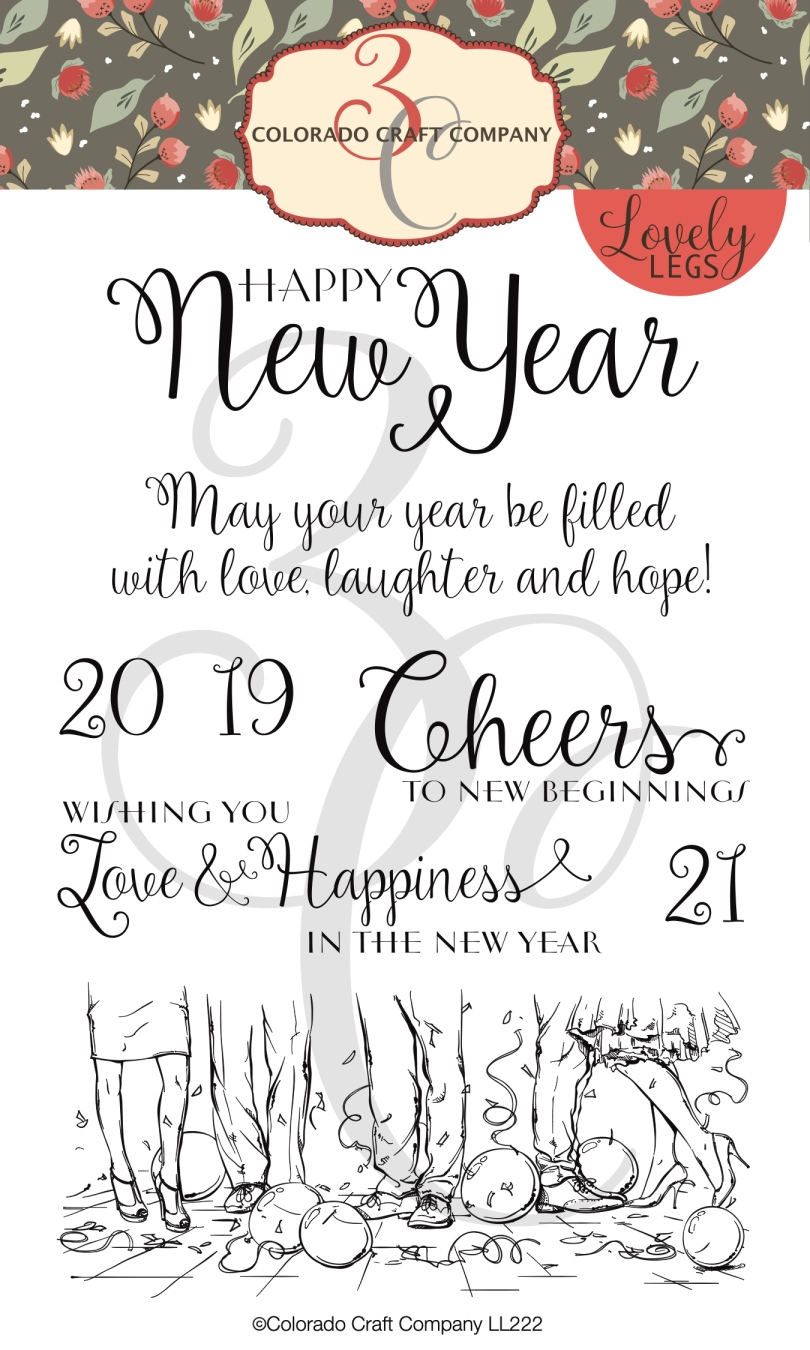 3C
COLORADO CRAFT COMPANY
Lovely
LEGS
HAPPY
New Year
May your year be filled
with love, laughter and hope!
20 19
Cheers
TO NEW BEGINNINGS
WISHING YOU
Love & Happiness
21
IN THE NEW YEAR
©Colorado Craft Company LL222